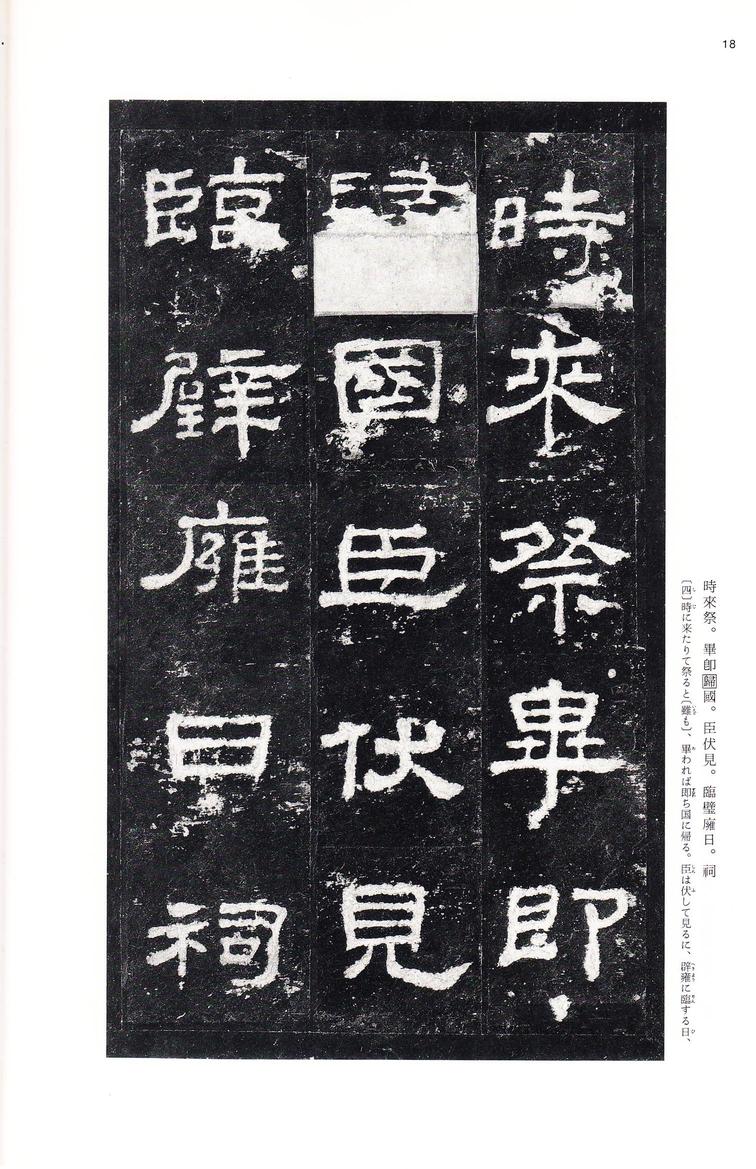 18
時來祭畢即
國臣伏見
臨璧廱日祠
時來祭。畢卽歸國。臣伏見。臨璧廱日。祠
〔四〕時に来たりて祭ると〔雖も〕、畢われば即ち国に帰る。臣は伏して見るに、辟雍に臨する日、